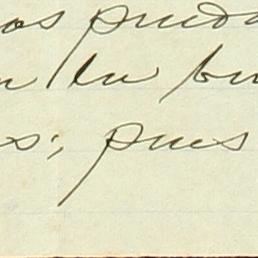 os pued
en la bu
s; pues